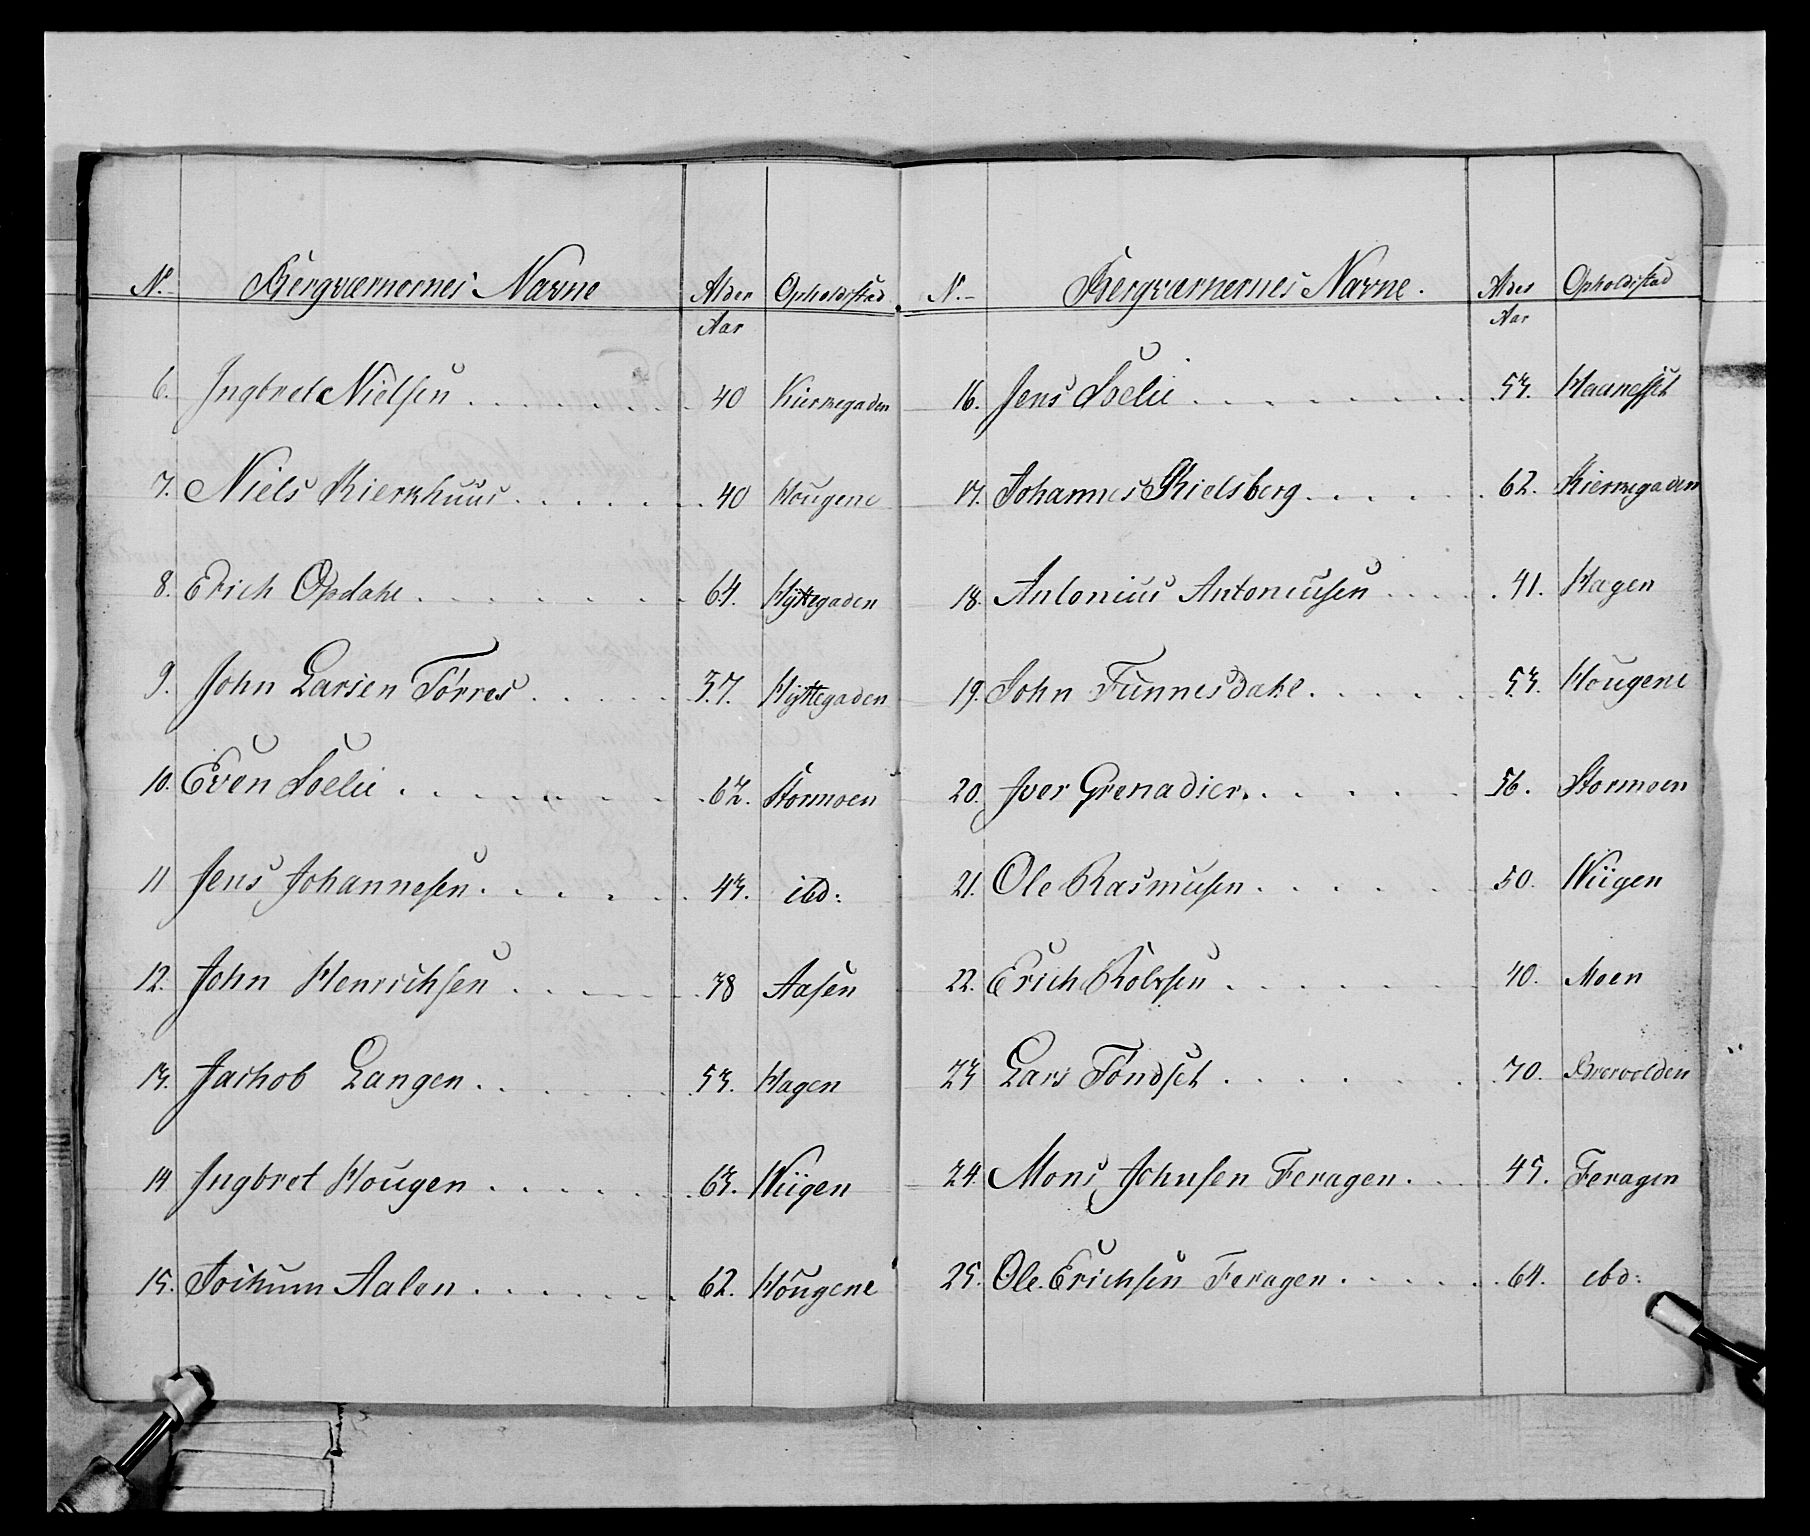 N. Bergværnernes Navne Alder Opholdsstad
Aar
6. Ingbret Nielsen 40 Kiernegaden
7. Niels Kierkhuus 40 Hougene
8. Erich Opdahl 64. Hyttegaden
9. John Larsen Törres 37. Hyttegaden
10. Even Soelie 62. Stormoen
11 Jens Johannesen 43. ibd:
12. John Henrichsen 38 Aasen
13. Jachob Langen 53. Hagen
14 Ingbret Hougen 63. Wiigen
15. Jochum Aalen 62. Hougene
N. Bergværnernes Navne. Alder Opholdsstad
Aar
16. Jens Soelie 53. Haanesset
17. Johannes Skielsberg 62. Kiernegaden
18. Antonius Antoniusen 41. Hagen
19. John Tunnesdahl 53. Hougene
20. Iver Grenadier 56. Stormoen
21. Ole Rasmusen 50. Wiigen
22. Erich Rolvsen 40. Moen
23 Lars Töndset 70. Brovolden
24. Mons Johnsen Feragen 45. Feragen
25. Ole Erichsen Feragen 64. ibd: